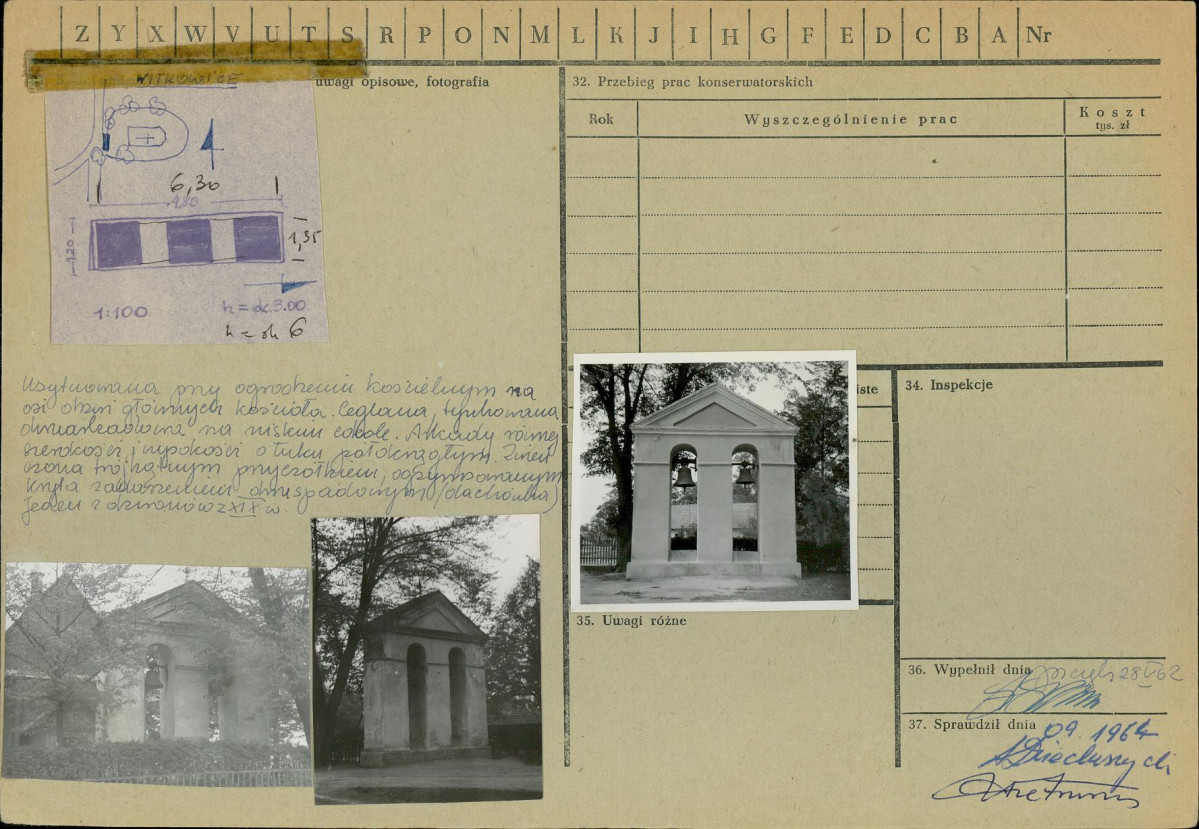 Z Y X W V U T S R P O N M L K J I H G F E D C B A Nr
WITKOWICE
uwagi opisowe, fotografia
6,30
1,35
120
1:100
h = ok. 3.00
h = ok 6
Usytuowana przy ogrodzeniu kościelnym na
osi drzwi głównych kościoła. Ceglana, tynkowana
dwuarkadowa na niskim cokole. Arkady równej
szerokości i wysokości o łuku półokrągłym. Zwień
czona trójkątnym przyczółkiem, ogzymsowanym
kryta zadaszeniem dwuspadowym /dachówka/
Jeden z dzwonów z XIX w.
32. Przebieg prac konserwatorskich
Rok
Wyszczególnienie prac
Koszt
tys. zł
iste
34. Inspekcje
35. Uwagi różne
36. Wypełnił dnia
62
37. Sprawdził dnia
09. 1964